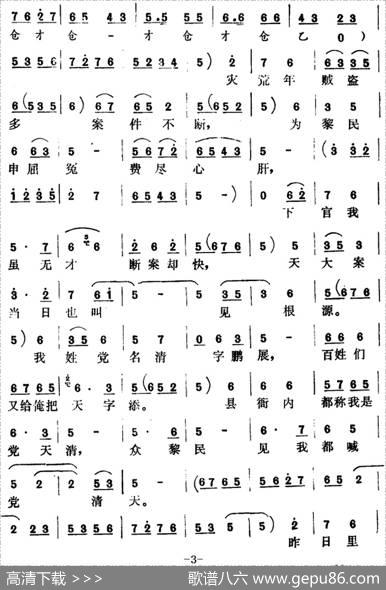 7 6 2 7 | 6 5 4 3 | 5. 5 5 5 | 6. 6 6 6 | 4 3 2 3 |
仓 才 仓 - 才 仓 才 仓 乙 0)
5 3 5 6 | 7 2 7 6 | 5 2 3 4 | 5) 2 | 7 6 | 6 3 3 5 |
灾 荒 年 贼 盗
6 (5 3 5 | 6) 6 7 | 6 5 2 | 5 (6 4 5 | 5) 6 | 3 5 |
多 案 件 不 断, 为 黎 民
6 6 3 | 5 - | 5 6 7 2 | 6 5 4 3 | 5 - | (3 3 2 |
申 屈 冤 费 尽 心 肝,
1 2 3 5 | 2 7 | 6 5 4 3 | 5 -) | 0 6 2 | 7 6 |
下 官 我
5. 7 | 6 6 | 2 6 2 | 5 (6 7 6 | 5) 5 | 3 5 3 |
虽 无 才 断 案 却 快, 天 大 案
3. 2 | 7 6 1 | 5 - | 5 3 5 | 3 6 | 5 (6 7 6 |
当 日 也 叫 见 根 源。
5) 6 | 3 5 | 5 - | 0 6 3 | 5 - | 6 6 6 |
我 姓 党 名 清 字 鹏 展, 百 姓 们
6 7 6 5 | 6. 3 | 5 (6 4 5 | 5) 6 | 6 6 | 5 7 6 5 |
又给俺把 天 字 添。 县 衙 内 都称我是
6. 3 | 5 - | 5. 6 | 5 - | 6. 7 | 6 5 |
党 天 清, 众 黎 民 见 我 都 喊
5 2 | 2 5 3 | 5 - | (0 7 6 5 | 6 7 6 5 | 6 5 3 5 |
党 清 天。
2 2 3 | 5 3 5 6 | 7 2 7 6 | 5 5) | 5 2 | 7 6 |
昨 日 里
-3-
高清下载 >>>
歌谱八六@www.gepu86.com